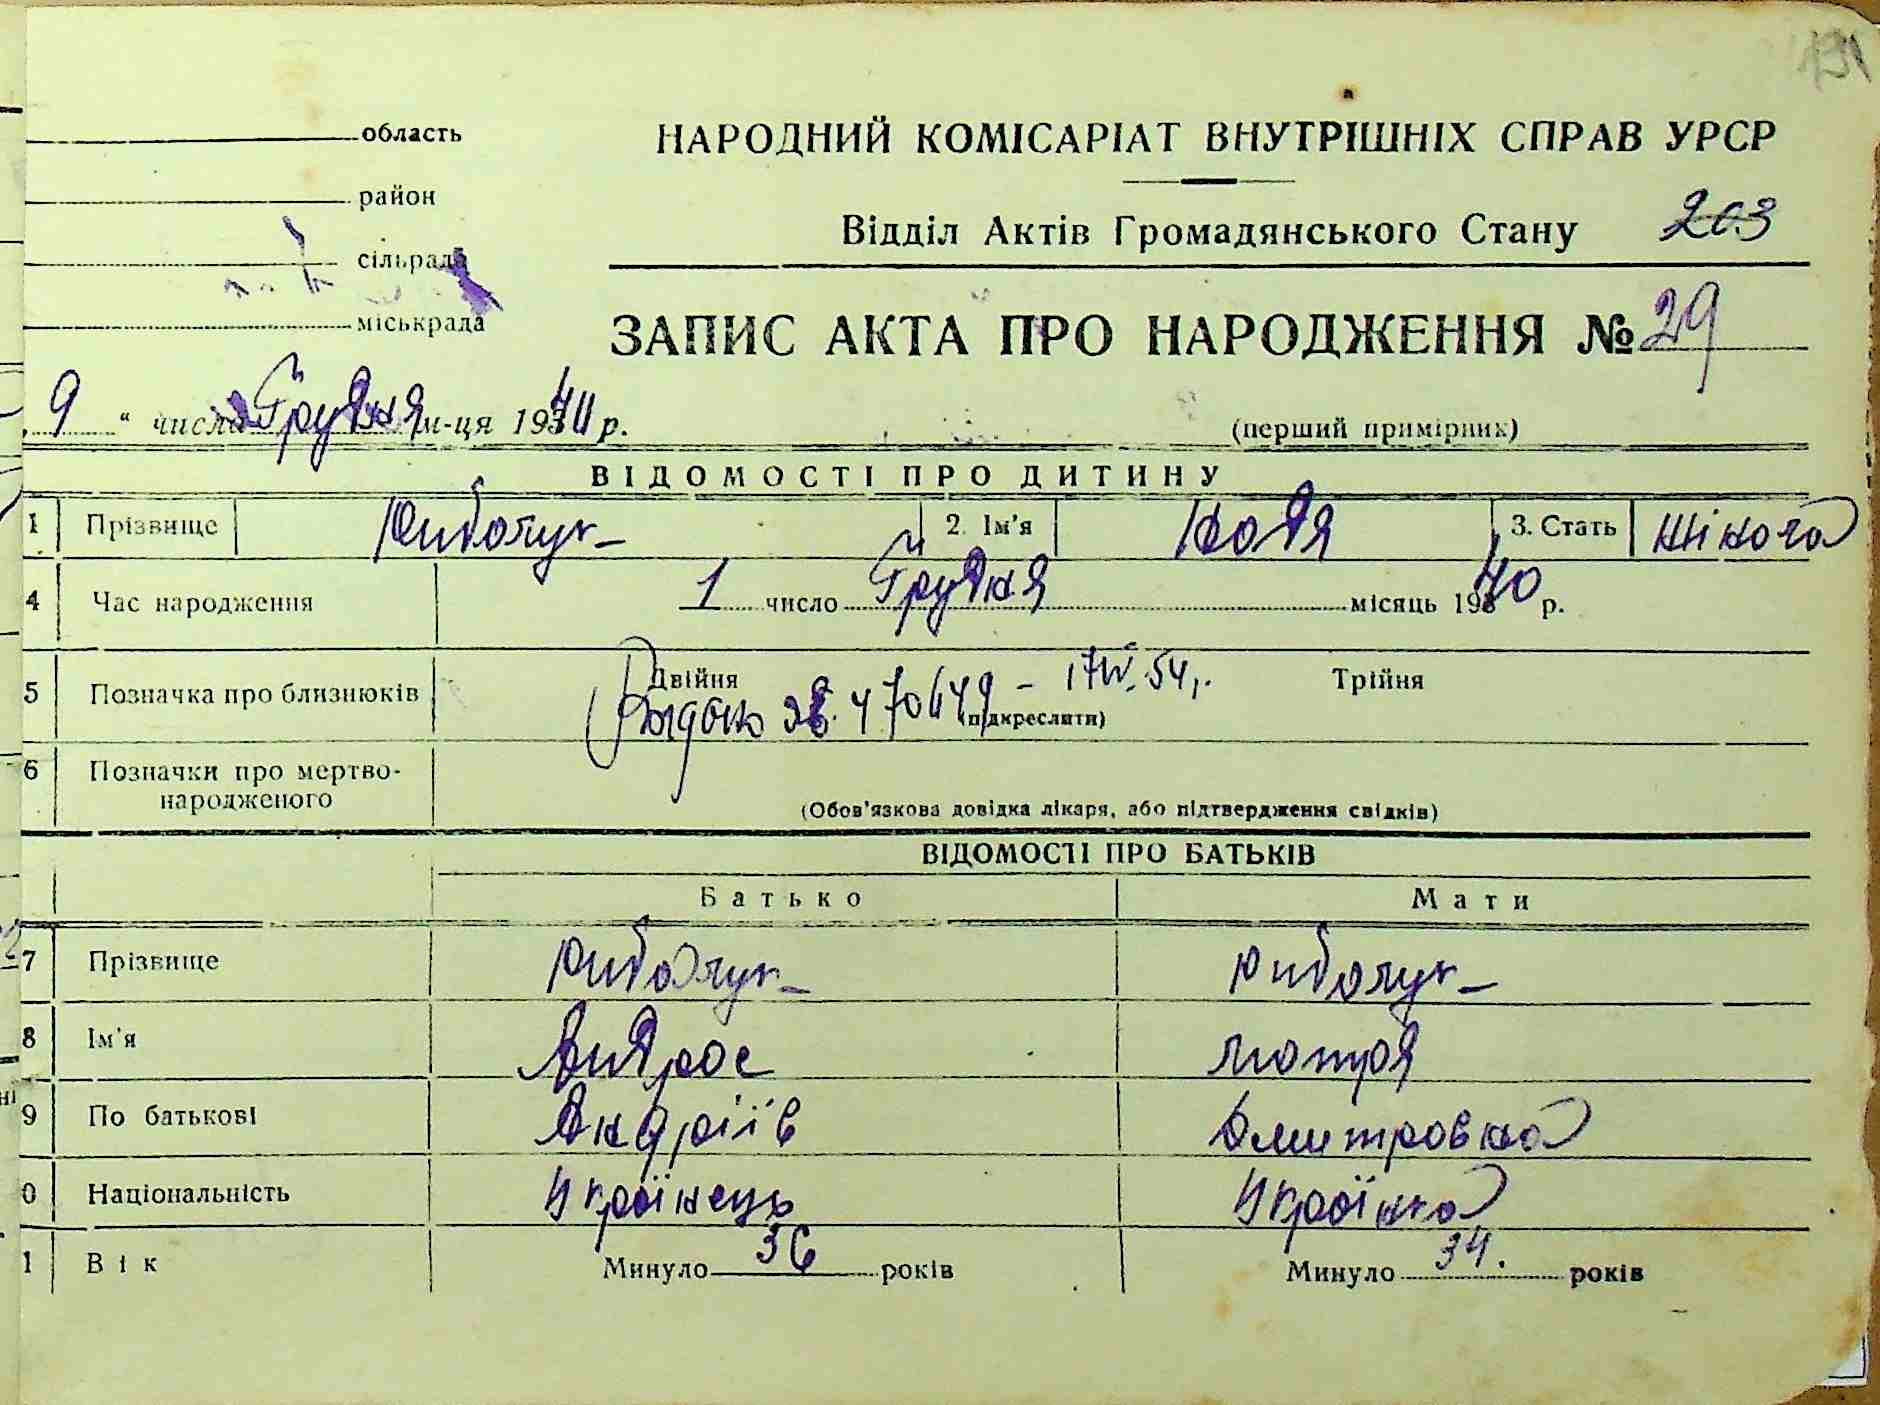 область
НАРОДНИЙ КОМІСАРІАТ ВНУТРІШНІХ СПРАВ УРСР
район
Відділ Актів Громадянського Стану 203
сільрада
міськрада
ЗАПИС АКТА ПРО НАРОДЖЕННЯ № 29
9 " числа Грудня м-ця 1940 р.
(перший примірник)
ВІДОМОСТІ ПРО ДИТИНУ
1 Прізвище 2. Ім'я Надя 3. Стать жіноча
4 Час народження 1 число Грудня місяць 1940 р.
5 Позначка про близнюків Двійня Трійня
(підкреслити)
470649 – 17 IV. 54 р.
6 Позначки про мертво-
народженого
(Обов'язкова довідка лікаря, або підтвердження свідків)
ВІДОМОСТІ ПРО БАТЬКІВ
Батько Мати
7 Прізвище
8 Ім'я Мотря
9 По батькові Андріїв Дмитровна
0 Національність Українець Українка
1 Вік Минуло 36 років Минуло 34. років